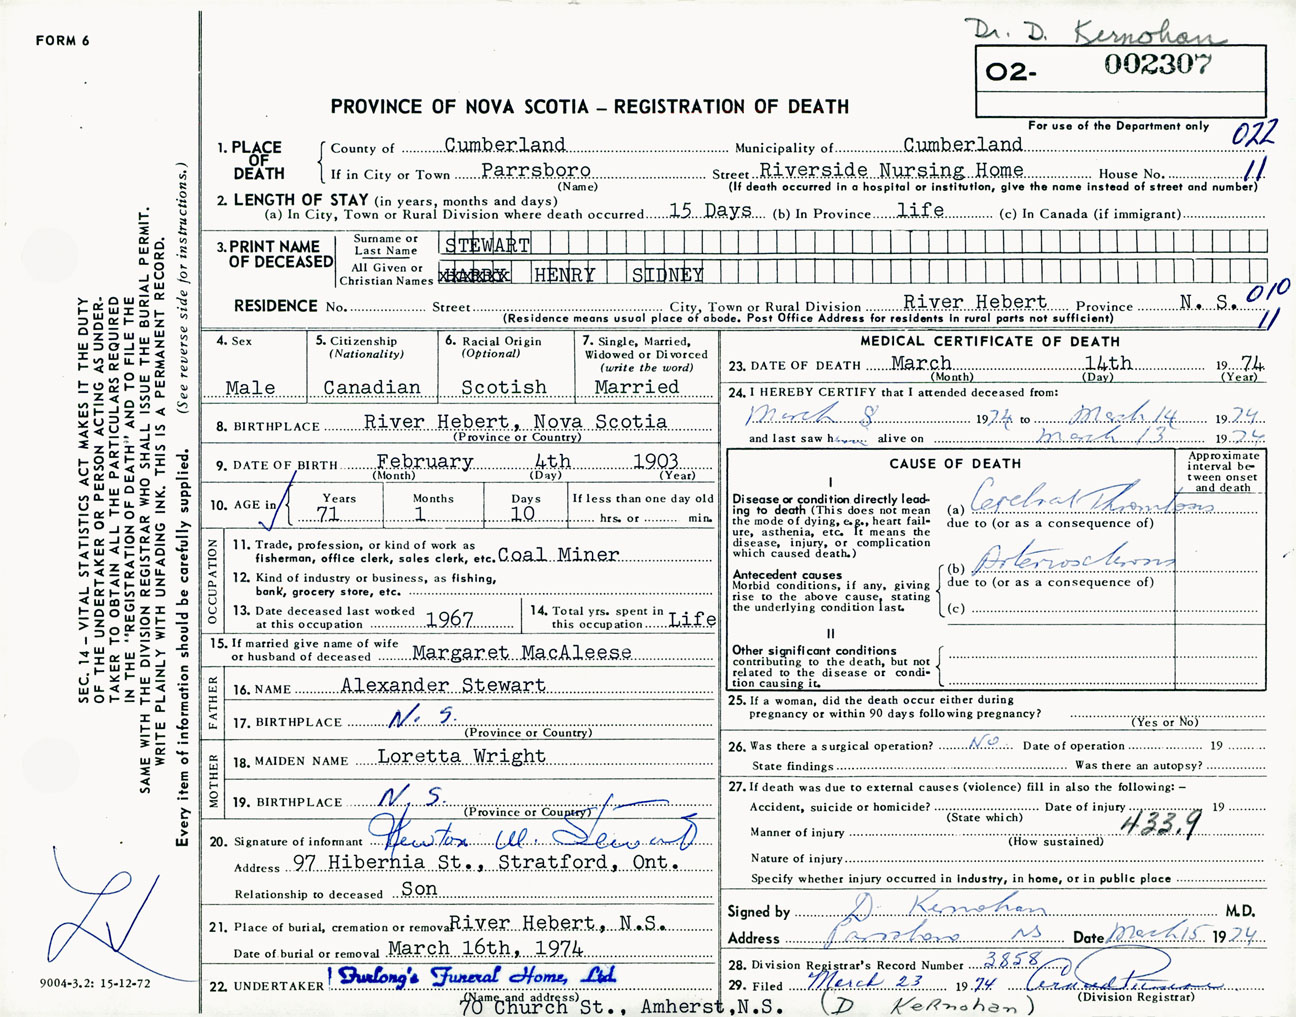 FORM 6
Dr. D. Kernohan
O2- 002307
PROVINCE OF NOVA SCOTIA – REGISTRATION OF DEATH
For use of the Department only
022
11
1. PLACE OF DEATH
County of Cumberland Municipality of Cumberland
If in City or Town Parrsboro Street Riverside Nursing Home House No.
(Name) (If death occurred in a hospital or institution, give the name instead of street and number)
2. LENGTH OF STAY (in years, months and days)
(a) In City, Town or Rural Division where death occurred 15 Days (b) In Province life (c) In Canada (if immigrant)
3. PRINT NAME OF DECEASED
Surname or Last Name STEWART
All Given or Christian Names HARRY HENRY SIDNEY
RESIDENCE No. Street City, Town or Rural Division River Hebert Province N. S. 010
(Residence means usual place of abode. Post Office Address for residents in rural parts not sufficient) 11
4. Sex
Male
5. Citizenship
(Nationality)
Canadian
6. Racial Origin
(Optional)
Scotish
7. Single, Married,
Widowed or Divorced
(write the word)
Married
8. BIRTHPLACE River Hebert, Nova Scotia
(Province or Country)
9. DATE OF BIRTH February 4th 1903
(Month) (Day) (Year)
10. AGE in Years Months Days If less than one day old
71 1 10 hrs. or min.
OCCUPATION
11. Trade, profession, or kind of work as
fisherman, office clerk, sales clerk, etc. Coal Miner
12. Kind of industry or business, as fishing,
bank, grocery store, etc.
13. Date deceased last worked
at this occupation 1967
14. Total yrs. spent in
this occupation Life
15. If married give name of wife
or husband of deceased Margaret MacAleese
FATHER
16. NAME Alexander Stewart
17. BIRTHPLACE N. S.
(Province or Country)
MOTHER
18. MAIDEN NAME Loretta Wright
19. BIRTHPLACE N. S.
(Province or Country)
20. Signature of informant Newton W. Stewart
Address 97 Hibernia St., Stratford, Ont.
Relationship to deceased Son
21. Place of burial, cremation or removal River Hebert, N.S.
Date of burial or removal March 16th, 1974
22. UNDERTAKER Furlong's Funeral Home, Ltd.
(Name and address)
70 Church St., Amherst, N.S.
MEDICAL CERTIFICATE OF DEATH
23. DATE OF DEATH March 14th 1974
(Month) (Day) (Year)
24. I HEREBY CERTIFY that I attended deceased from:
March 8 1974 to March 14 1974
and last saw h alive on March 13 1974
CAUSE OF DEATH
Approximate
interval be-
tween onset
and death
I
Disease or condition directly lead-
ing to death (This does not mean
the mode of dying, e.g., heart fail-
ure, asthenia, etc. It means the
disease, injury, or complication
which caused death.)
(a) Cerebral Thrombosis
due to (or as a consequence of)
Antecedent causes
Morbid conditions, if any, giving
rise to the above cause, stating
the underlying condition last.
(b) Arteriosclerosis
due to (or as a consequence of)
(c)
II
Other significant conditions
contributing to the death, but not
related to the disease or condi-
tion causing it.
25. If a woman, did the death occur either during
pregnancy or within 90 days following pregnancy?
(Yes or No)
26. Was there a surgical operation? No Date of operation 19
State findings Was there an autopsy?
27. If death was due to external causes (violence) fill in also the following: –
Accident, suicide or homicide? Date of injury 19
(State which)
Manner of injury 433.9
(How sustained)
Nature of injury
Specify whether injury occurred in industry, in home, or in public place
Signed by D. Kernohan M.D.
Address Parrsboro NS Date March 15 1974
28. Division Registrar's Record Number 3858
29. Filed March 23 1974
(Division Registrar)
(D KERNOHAN)
SEC. 14 – VITAL STATISTICS ACT MAKES IT THE DUTY
OF THE UNDERTAKER OR PERSON ACTING AS UNDER-
TAKER TO OBTAIN ALL THE PARTICULARS REQUIRED
IN THE "REGISTRATION OF DEATH" AND TO FILE THE
SAME WITH THE DIVISION REGISTRAR WHO SHALL ISSUE THE BURIAL PERMIT.
WRITE PLAINLY WITH UNFADING INK. THIS IS A PERMANENT RECORD.
Every item of information should be carefully supplied. (See reverse side for instructions.)
9004-3.2: 15-12-72